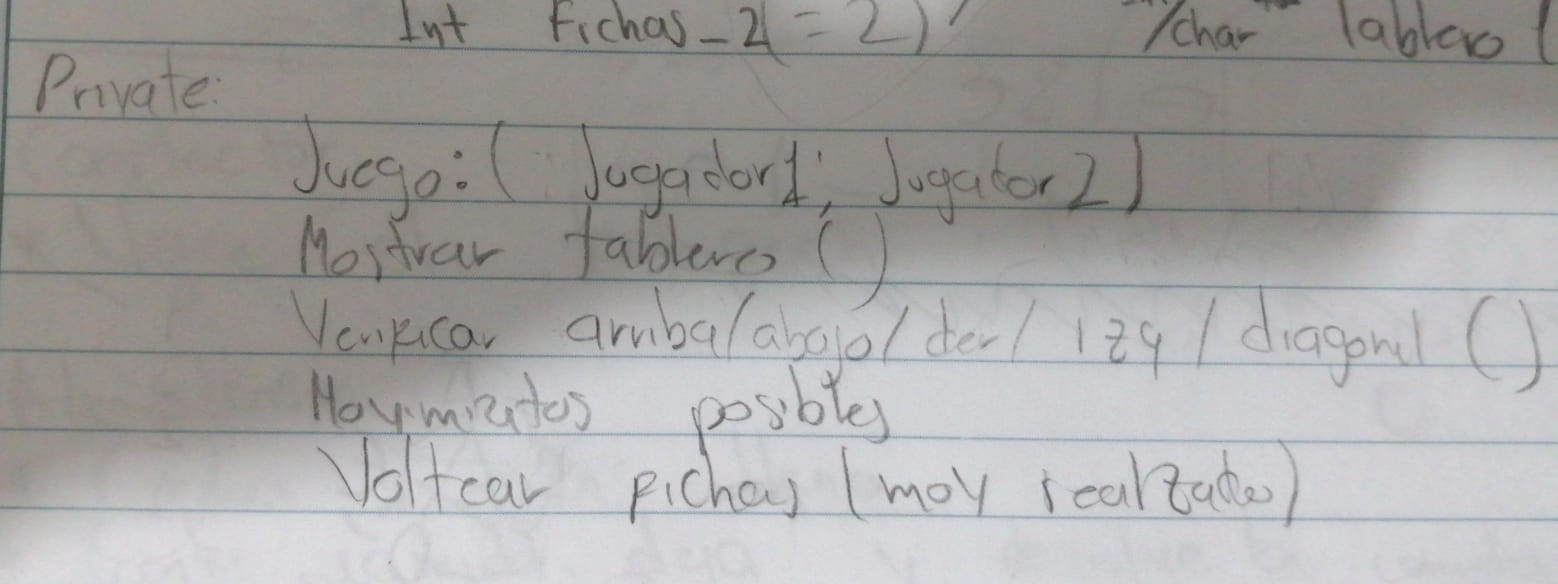 Int Fichas_2(=2) /char Tablero (
Private:
Juego: ( Jugador1; Jugator2)
Mostrar tablero ()
Verificar arriba/abajo/der/izq/diagonal ()
Movimientos posibles
Voltear Fichas (mov realizado)